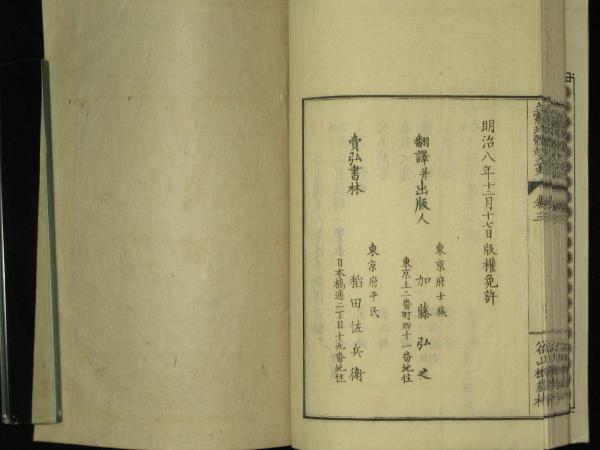 明治八年十二月十七日版權免許
翻譯并出版人
東京府士族
加藤弘之
東京上二番町四十一番地住
賣弘書林
東京府平民
稲田佐兵衛
日本橋通二丁目十九番地住
卷三
谷山樓藏板